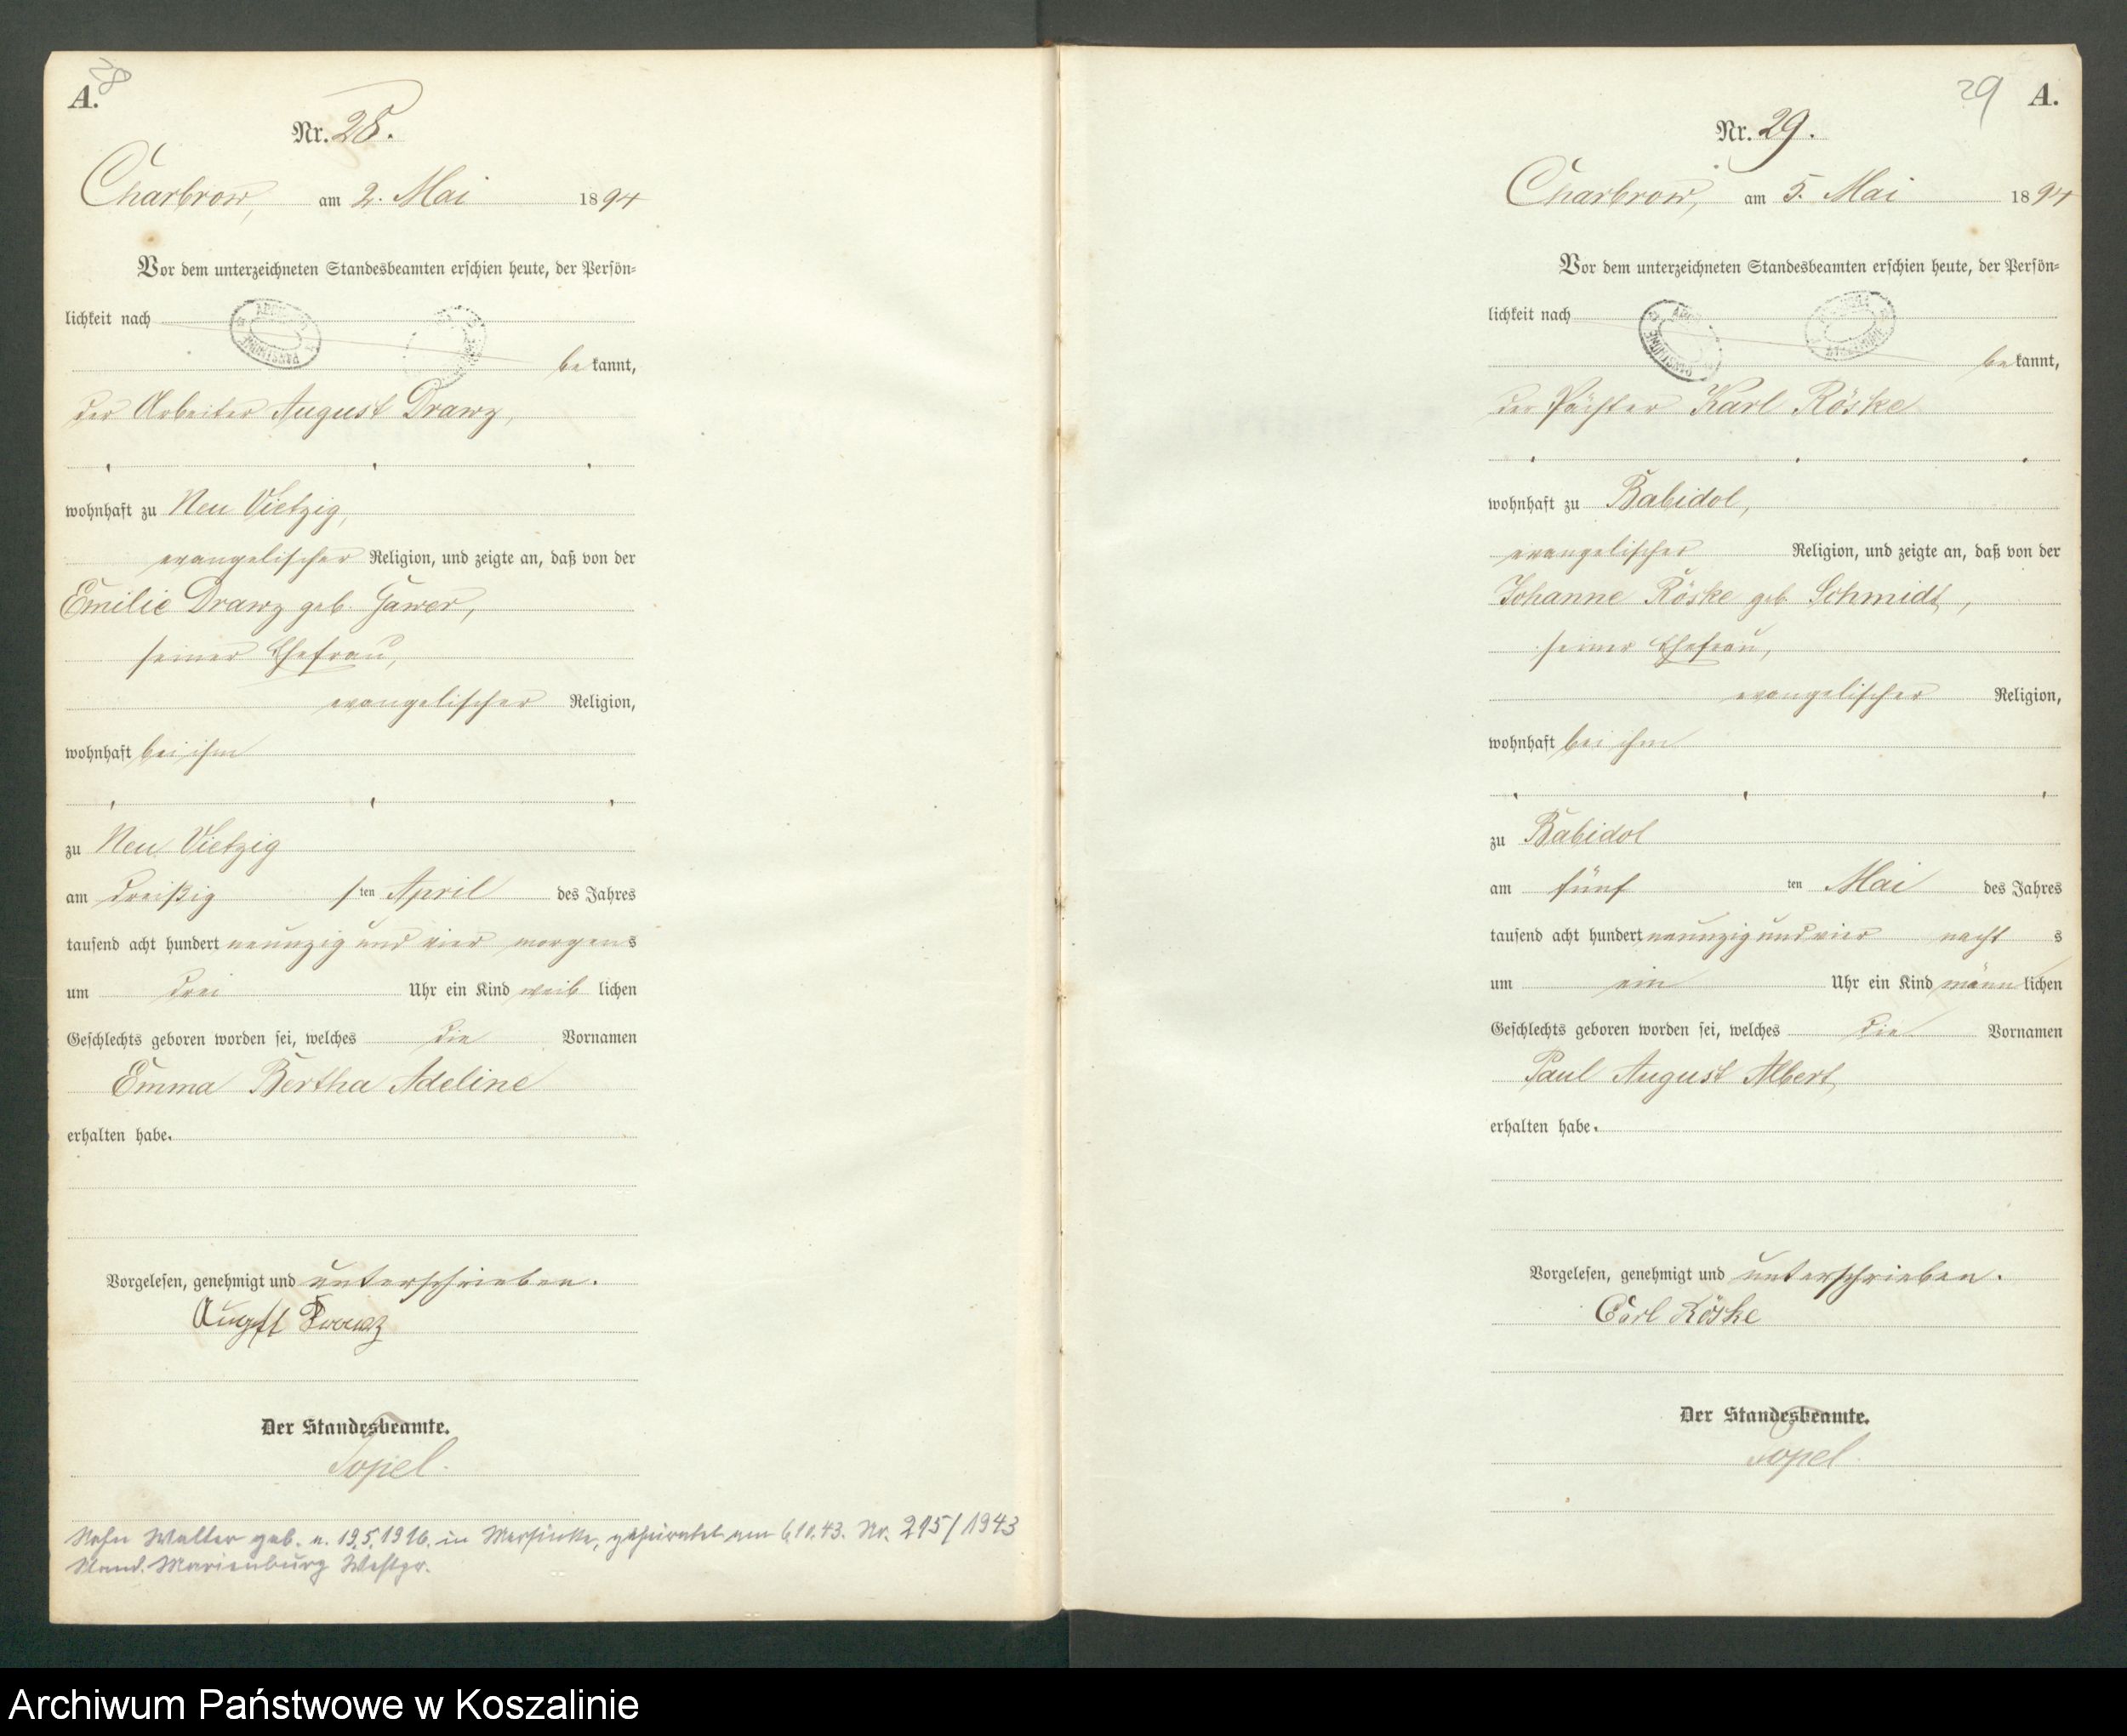 28
A.
Nr. 28.
Charbrow, am 2. Mai 1894
Vor dem unterzeichneten Standesbeamten erschien heute, der Persön-
lichkeit nach
bekannt,
der Arbeiter August Drawz,
wohnhaft zu Neu Vietzig,
evangelischer Religion, und zeigte an, daß von der
Emilie Drawz geb. Gawer,
seiner Ehefrau,
evangelischer Religion,
wohnhaft bei ihm
zu Neu Vietzig
am dreißigsten April des Jahres
tausend acht hundert neunzig und vier morgens
um drei Uhr ein Kind weiblichen
Geschlechts geboren worden sei, welches die Vornamen
Emma Bertha Adeline
erhalten habe.
Vorgelesen, genehmigt und unterschrieben.
August Drawz
Der Standesbeamte.
Topel.
Sohn Walter geb. a. 19.5.1916. in geheiratet am 6.10.43. Nr. 215/1943
Stand. Marienburg Westpr.
29 A.
Nr. 29.
Charbrow, am 5. Mai 1894
Vor dem unterzeichneten Standesbeamten erschien heute, der Persön-
lichkeit nach
bekannt,
der Pächter Karl Röske
wohnhaft zu Babidol,
evangelischer Religion, und zeigte an, daß von der
Johanne Röske geb. Schmidt,
seiner Ehefrau,
evangelischer Religion,
wohnhaft bei ihm
zu Babidol
am fünf ten Mai des Jahres
tausend acht hundert neunzig und vier nachts
um ein Uhr ein Kind männlichen
Geschlechts geboren worden sei, welches die Vornamen
Paul August Albert
erhalten habe.
Vorgelesen, genehmigt und unterschrieben.
Carl Röske
Der Standesbeamte.
Topel.
Archiwum Państwowe w Koszalinie